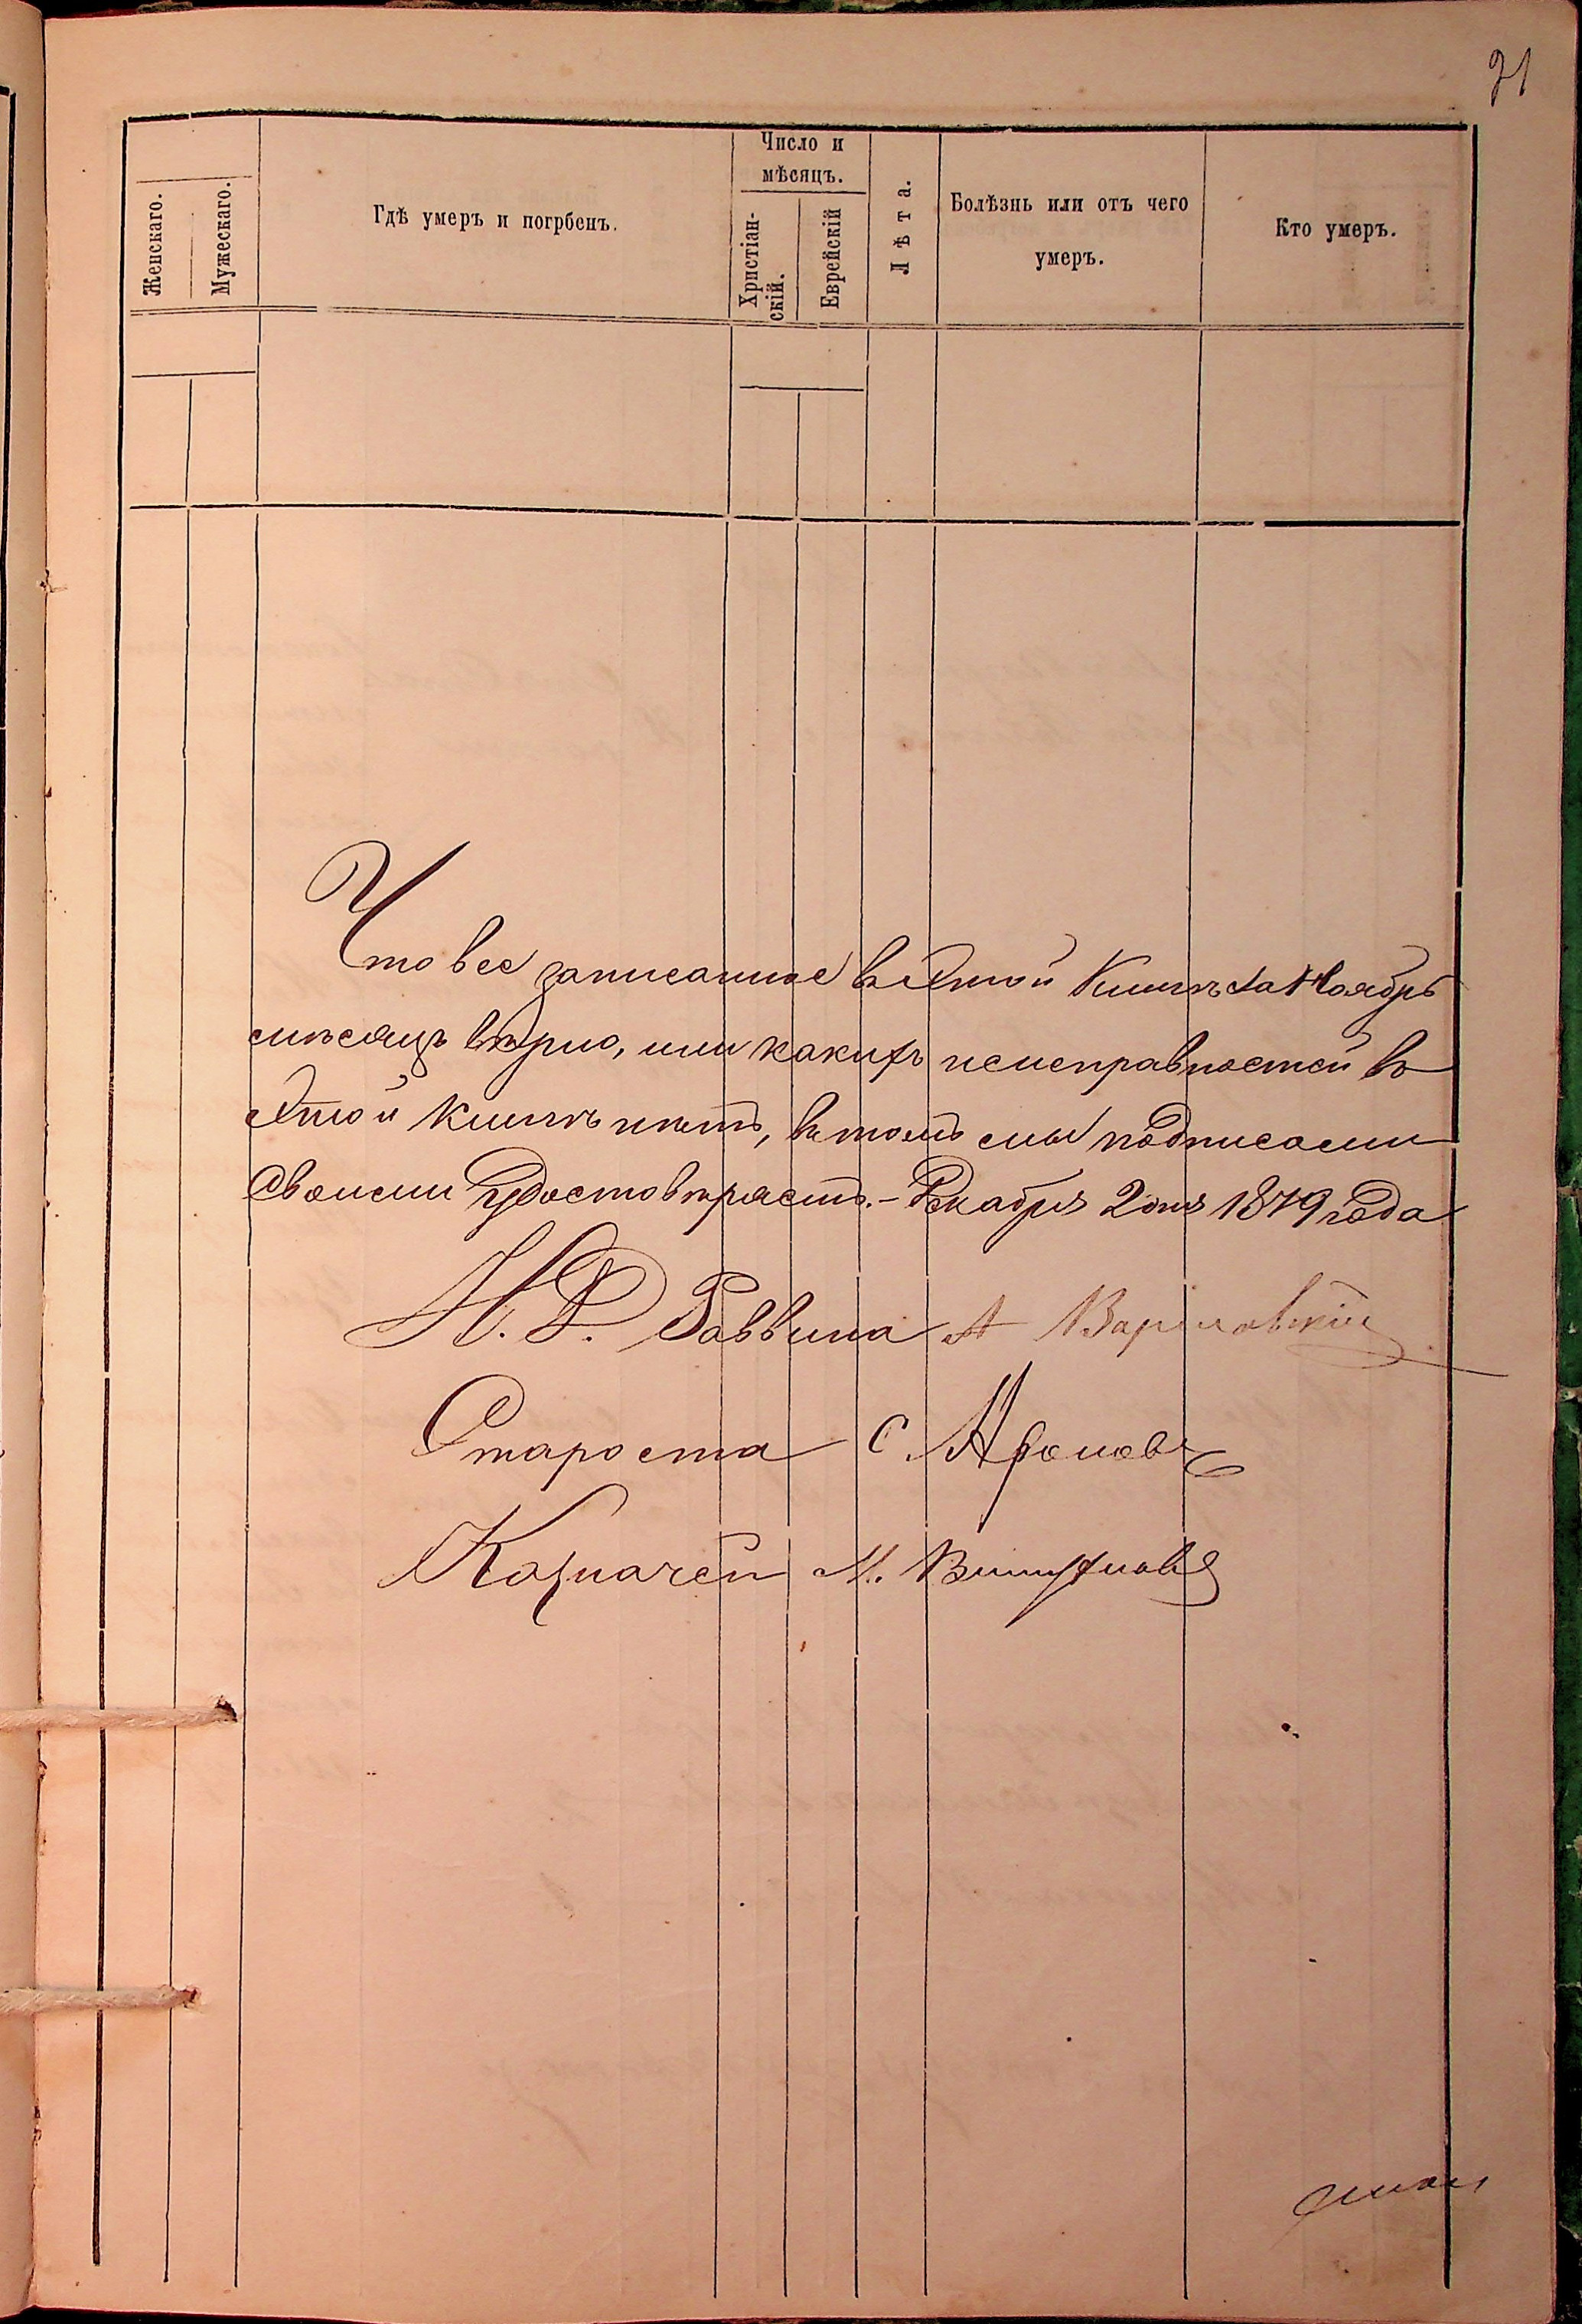 31
Женскаго.
Мужескаго.
Гдѣ умеръ и погрбенъ.
Число и
мѣсяцъ.
Христіан-
скій.
Еврейскій
Лѣта.
Болѣзнь или отъ чего
умеръ.
Кто умеръ.
Что все записанное въ Этой Книгѣ за Ноябрь
мѣсяцъ вѣрно, или какихъ неисправностей въ
Этой Книгѣ нѣтъ, въ томъ мы подписами
Своими Удостовѣряемъ. – Декабря 2 дня 1879 года
И. Д. Раввина А
Староста С. Ароновъ
Казначей М.